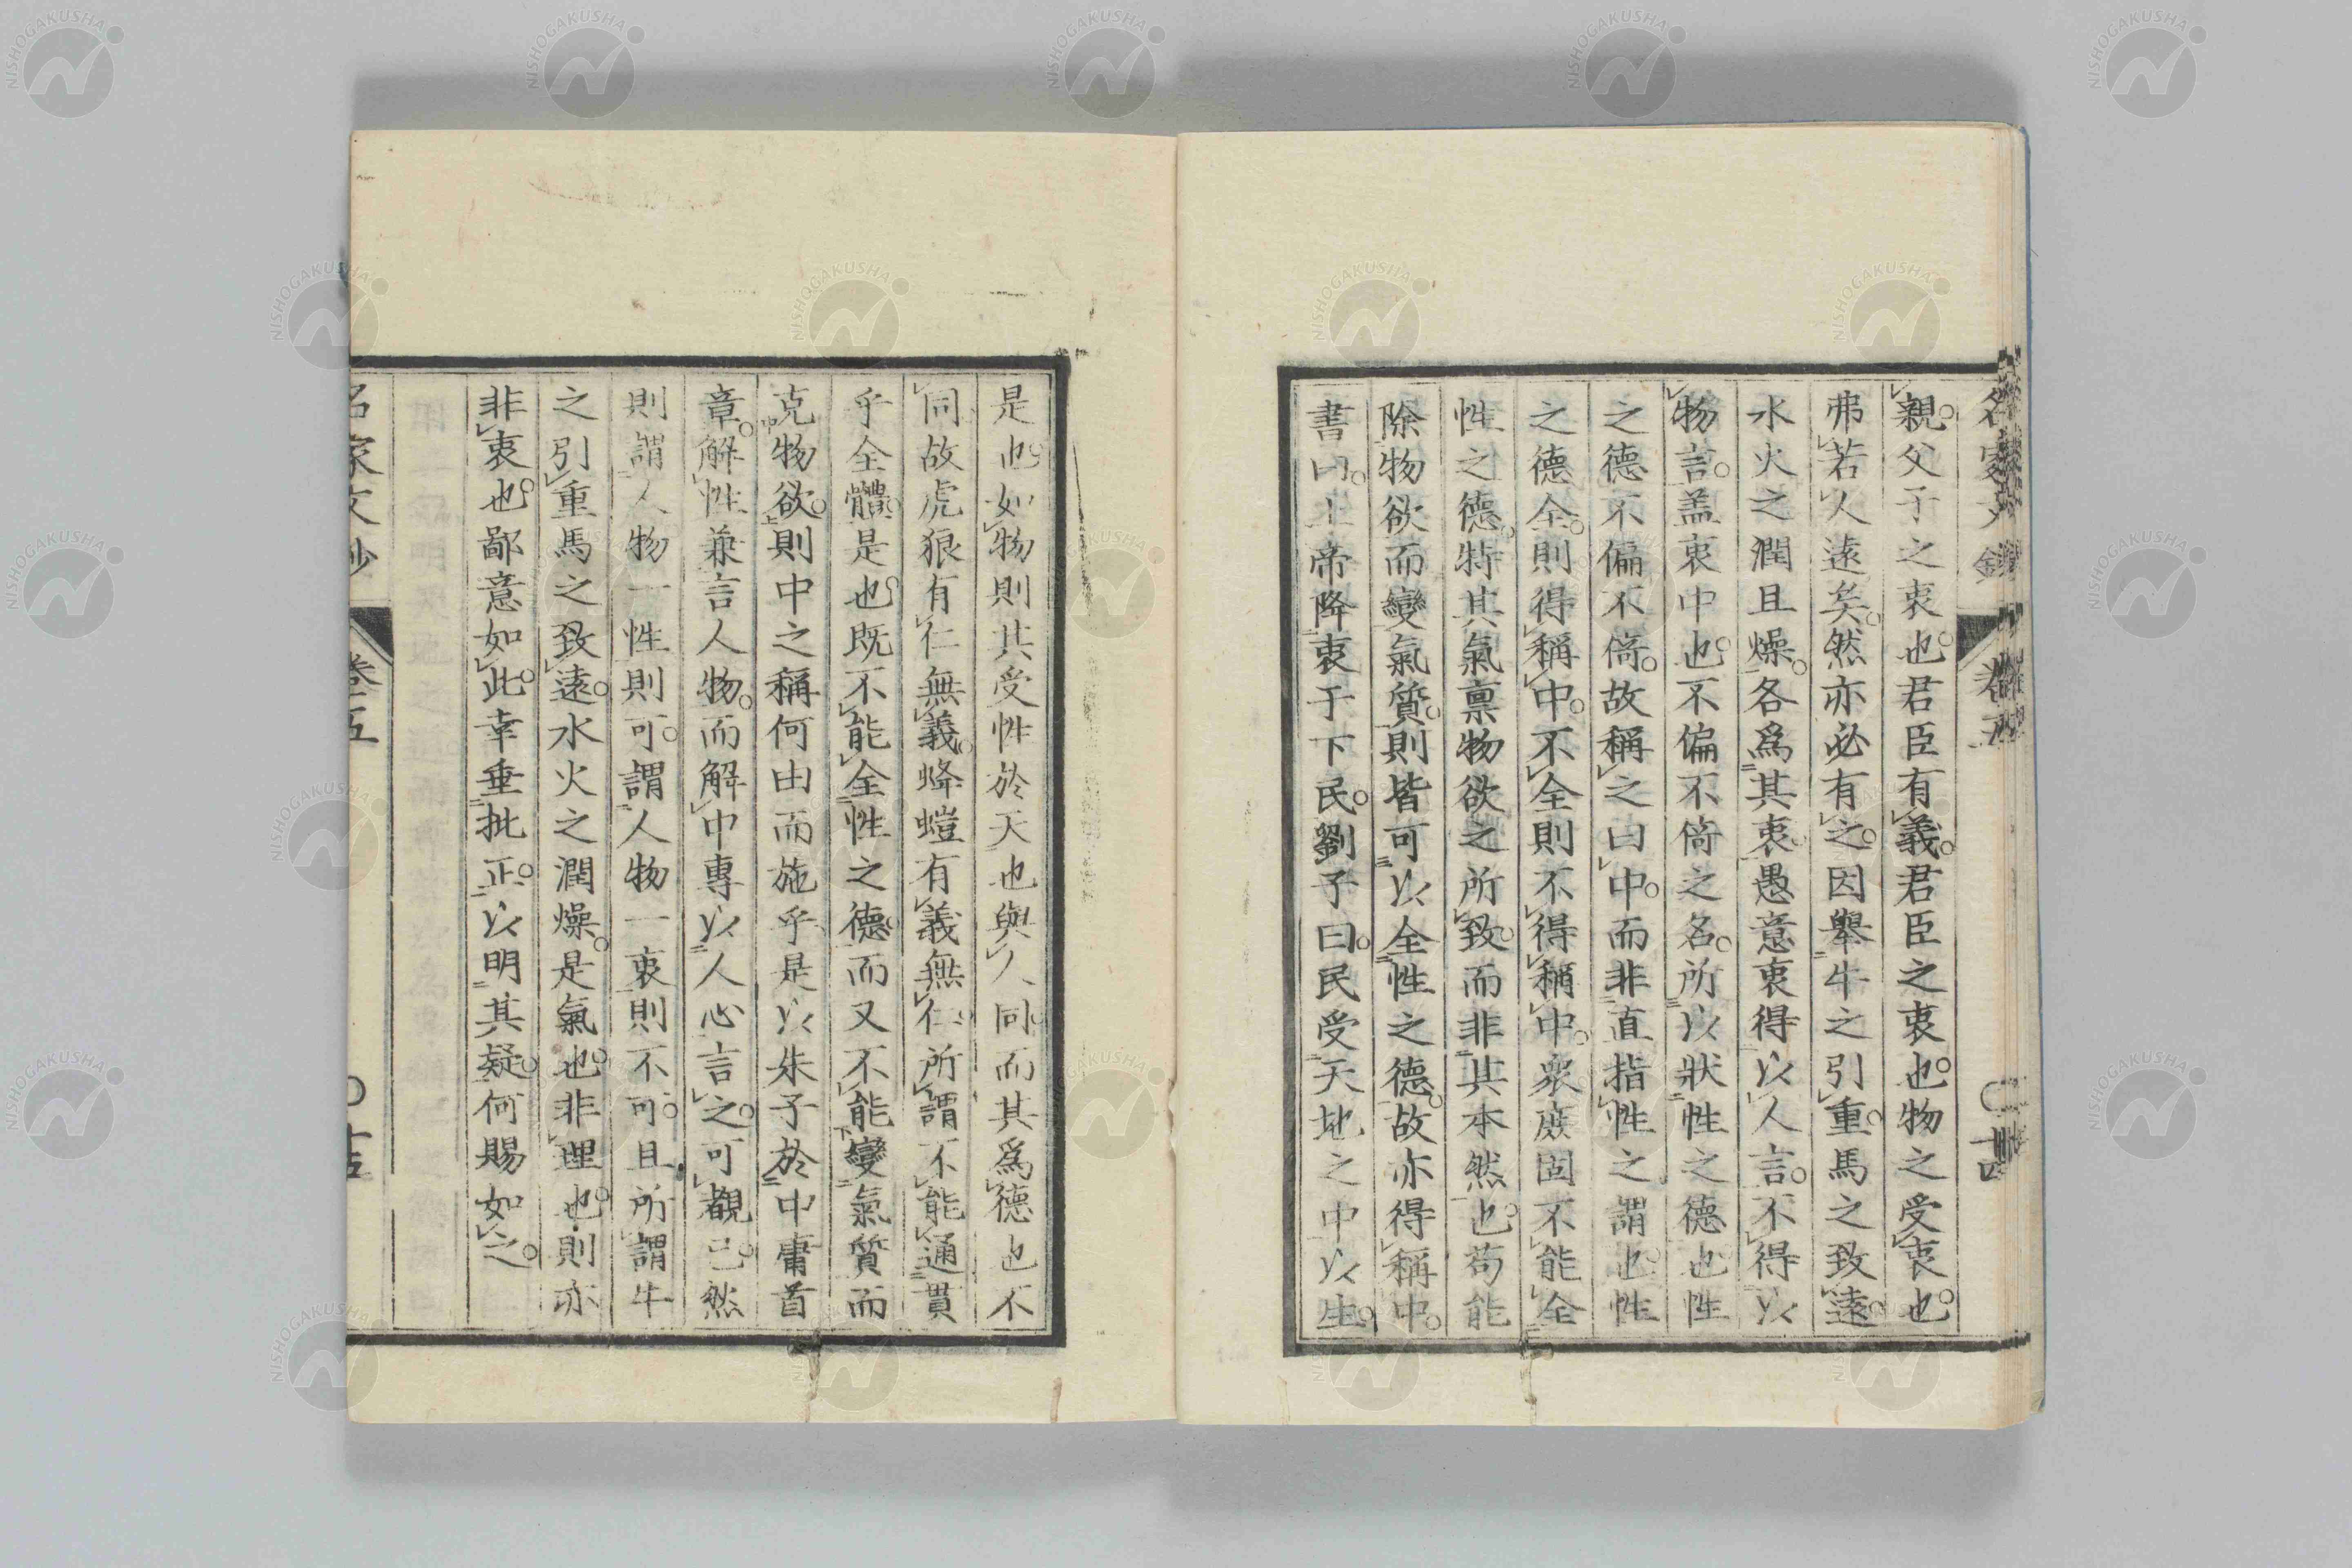 親父子之衷也君臣有義君臣之衷也物之受衷也
弗若人遠矣然亦必有之因舉牛之引重馬之致遠
水火之潤且燥各爲其衷愚意衷得以人言不得以
物言盖衷中也不偏不倚之名所以狀性之德也性
之德不偏不倚故稱之曰中而非直指性之謂也性
之德全則得稱中不全則不得稱中衆庶固不能全
性之德特其氣禀物欲之所致而非其本然也苟能
除物欲而變氣質則皆可以全性之德故亦得稱中
書曰上帝降衷于下民劉子曰民受天地之中以生
是也如物則其受性於天也與人同而其爲德也不
同故虎狼有仁無義蜂螘有義無仁所謂不能通貫
乎全體是也既不能全性之德而又不能變氣質而
克物欲則中之稱何由而施乎是以朱子於中庸首
章解性兼言人物而解中專以人心言之可觀已然
則謂人物一性則可謂人物一衷則不可且所謂牛
之引重馬之致遠水火之潤燥是氣也非理也則亦
非衷也鄙意如此幸垂批正以明其疑何賜如之
名家文抄 卷五
NISHOGAKUSHA